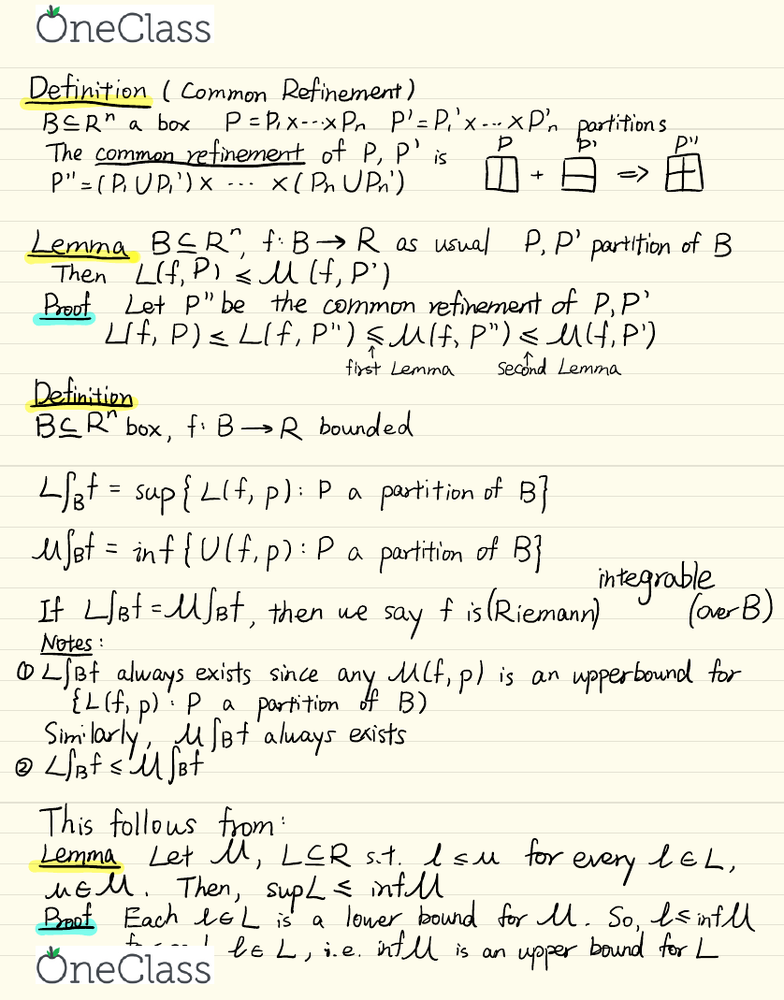 OneClass
Definition (Common Refinement)
B⊆Rⁿ a box P = P₁×⋯×Pₙ P' = P₁'×⋯×P'ₙ partitions
The common refinement of P, P' is P P' P''
P'' = (P₁∪P₁')× ⋯ ×(Pₙ∪Pₙ') + ⇒
Lemma B⊆Rⁿ, f: B→R as usual P, P' partition of B
Then L(f, P) ≤ U(f, P')
Proof Let P'' be the common refinement of P, P'
L(f, P) ≤ L(f, P'') ≤ U(f, P'') ≤ U(f, P')
↑ ↑
first Lemma second Lemma
Definition
B⊆Rⁿ box, f: B→R bounded
L∫_B f = sup{L(f, p): P a partition of B}
U∫_B f = inf{U(f, p): P a partition of B}
integrable
If L∫_B f = U∫_B f, then we say f is (Riemann) (over B)
Notes:
① L∫_B f always exists since any U(f, p) is an upperbound for
{L(f, p): P a partition of B)
Similarly, U∫_B f always exists
② L∫_B f ≤ U∫_B f
This follows from:
Lemma Let U, L⊆R s.t. l ≤ u for every l∈L,
u∈U. Then, supL ≤ infU
Proof Each l∈L is a lower bound for U. So, l ≤ infU
l∈L, i.e. infU is an upper bound for L
OneClass